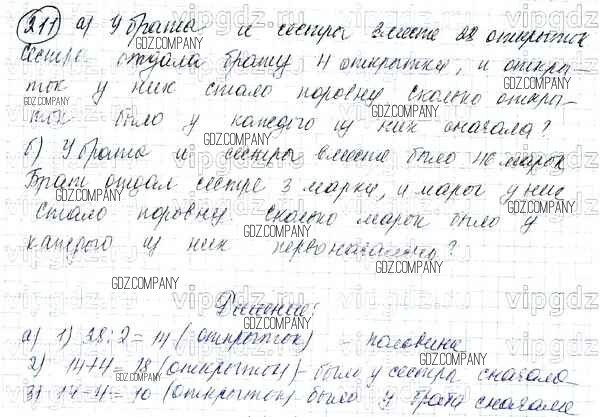 211 а) У брата и сестры вместе 28 открыток
Сестра отдала брату 4 открытки, и откры-
ток у них стало поровну сколько откры-
ток было у каждого из них сначала?
б) У брата и сестры вместе было 40 марок
Брат отдал сестре 3 марки, и марок у них
стало поровну сколько марок было у
каждого из них первоначально?
Решение:
а) 1) 28:2=14 (открыток) - половина
2) 14+4=18 (открыток) - было у сестры сначала
3) 14-4=10 (открыток) - было у брата сначала
GDZ.COMPANY
vipgdz.ru